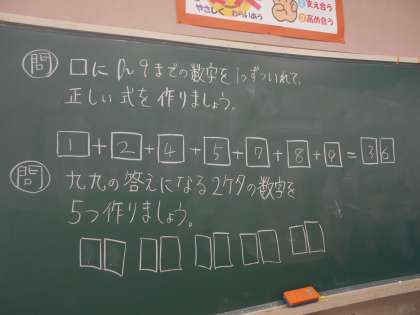 やさしく わらいあう
支え合う
高め合う
問 □に1〜9までの数字を1つずついれて、
正しい式を作りましょう。
1+2+4+5+7+8+9=36
問 九九の答えになる2ケタの数字を
5つ作りましょう。